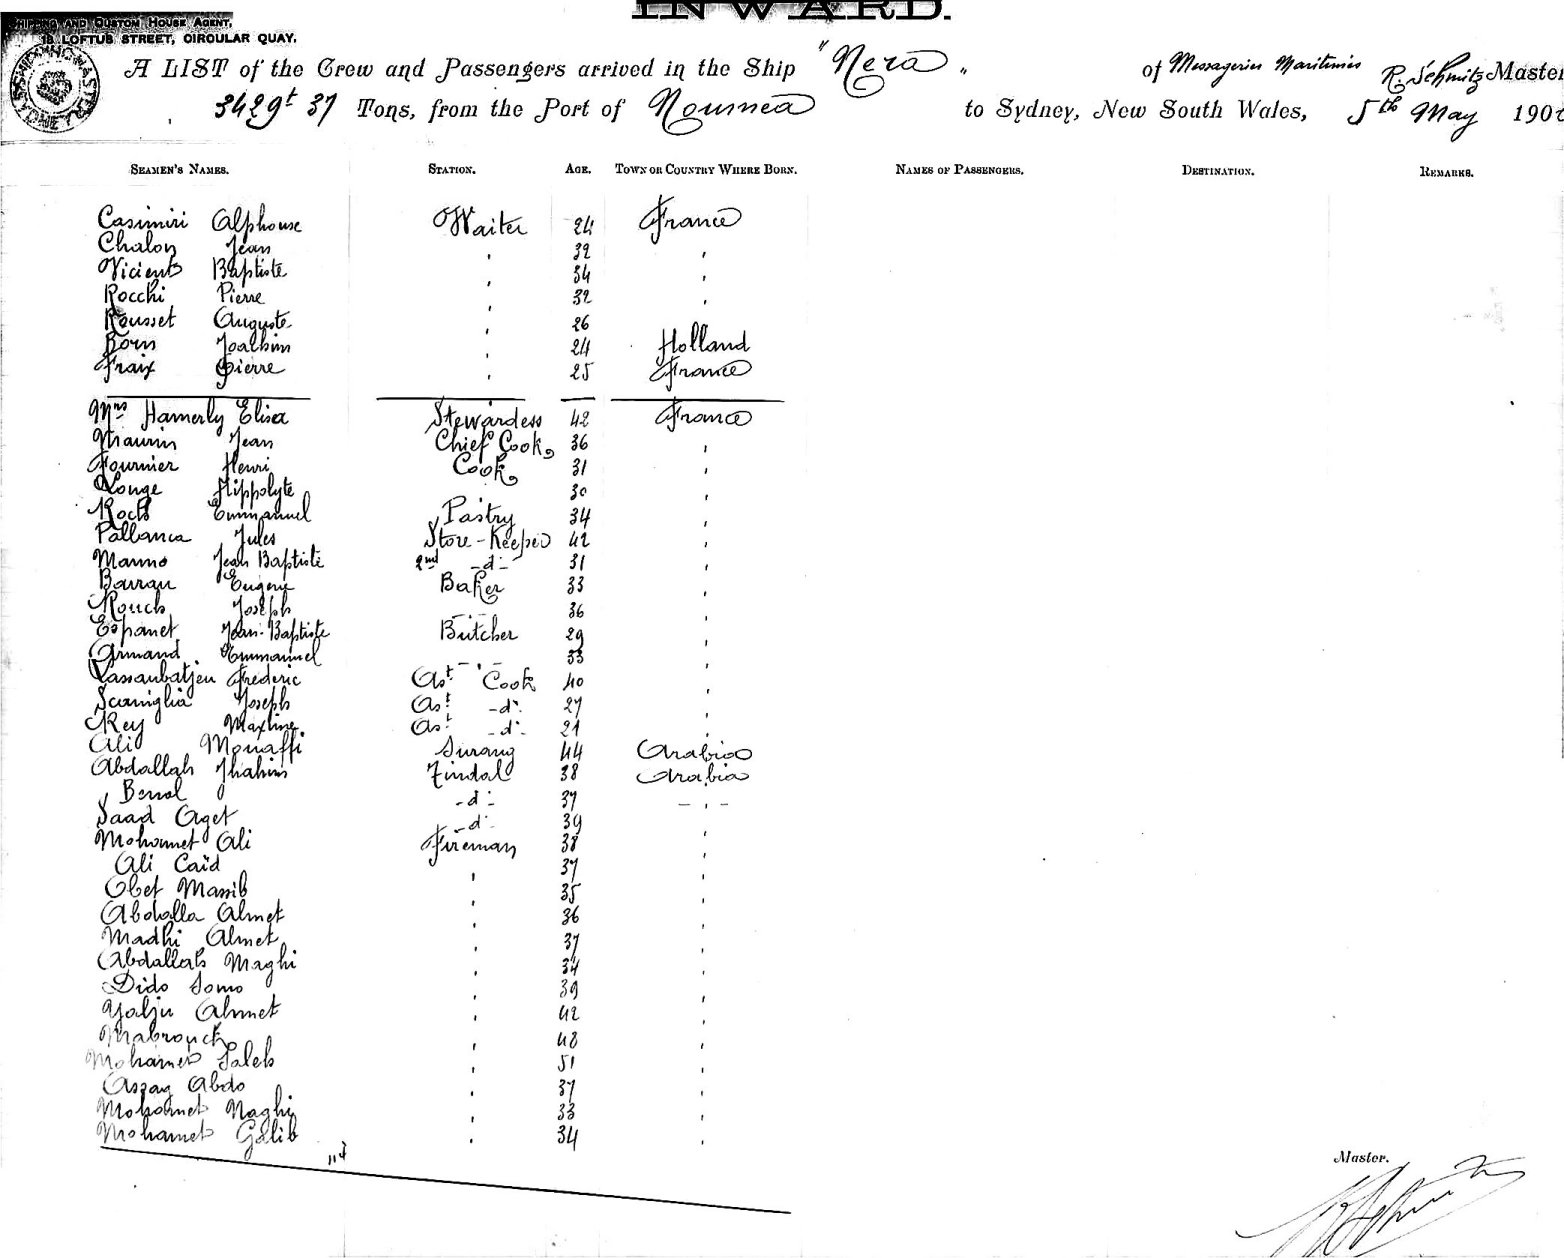 INWARD.
SHIPPING AND CUSTOM HOUSE AGENT,
18 LOFTUS STREET, CIRCULAR QUAY.
A LIST of the Crew and Passengers arrived in the Ship "Nera" of Messageries Maritimes R. Schmitz Master
3429t 37 Tons, from the Port of Noumea to Sydney, New South Wales, 5th May 190
SEAMEN'S NAMES. STATION. AGE. TOWN OR COUNTRY WHERE BORN. NAMES OF PASSENGERS. DESTINATION. REMARKS.
Casimiri Alphonse Waiter 24 France
Chalon Jean " 32 "
Vicients Baptiste " 34 "
Rocchi Pierre " 32 "
Rousset Auguste " 26
Born Joachim " 24 Holland
Fraix Pierre " 25 France
Mrs Hamerly Elisa Stewardess 42 France
Maurin Jean Chief Cook 36 "
Fournier Henri Cook 31 "
Longe Hippolyte 30 "
Roch Emmanuel Pastry 34 "
Pallanca Jules Store-Keeper 42 "
Manno Jean Baptiste 2nd -d- 31 "
Barrau Eugene Baker 33 "
Rouch Joseph -"- 36 "
Espanet Jean-Baptiste Butcher 29 "
Armand Emmanuel -"- 33 "
Lassaubatjeu Frederic Ast Cook 40 "
Scaniglia Joseph Ast -d- 27 "
Rey Maxime Ast -d- 21 "
Ali Mouaffi Surang 44 Arabia
Abdallah Ihahim Tindal 38 Arabia
Benal -d- 37 - " -
Saad Aget -d- 39 "
Mohomet Ali Fireman 38 "
Ali Caïd " 37 "
Obet Massib " 35 "
Abdalla Ahmet " 36 "
Madhi Ahmet " 37 "
Abdallah Maghi " 34 "
Dido Somo " 39 "
Yalju Ahmet " 42 "
Mabrouck " 48 "
Mohamed Saleh " 51 "
Assag Abdo " 37 "
Mohamet Naghi " 33 "
Mohamet Galib " 34 "
Master.